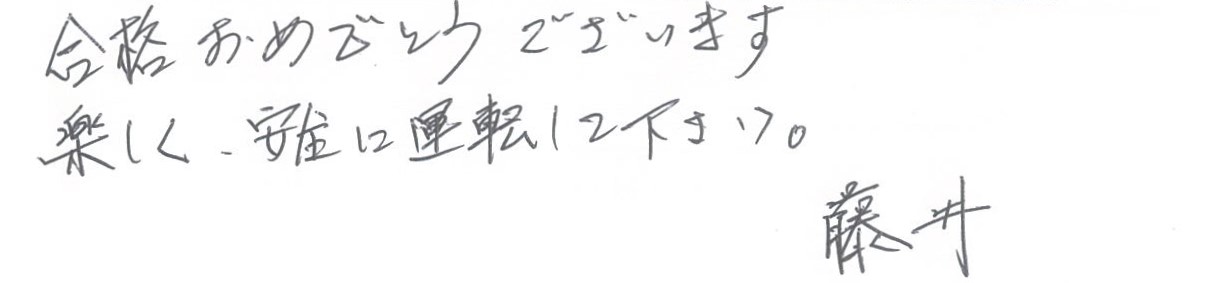 合格おめでとうございます
楽しく、安全に運転して下さい。
藤井